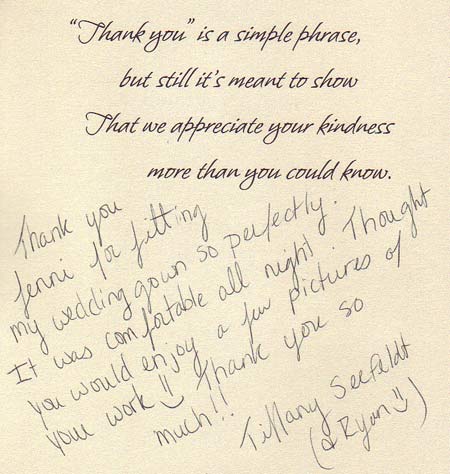 "Thank you" is a simple phrase,
but still it's meant to show
That we appreciate your kindness
more than you could know.
Thank you
Jenni for fitting
my wedding gown so perfectly.
It was comfortable all night. Thought
you would enjoy a few pictures of
your work :) Thank you so
much!!
Tiffany Seefeldt
(& Ryan :))